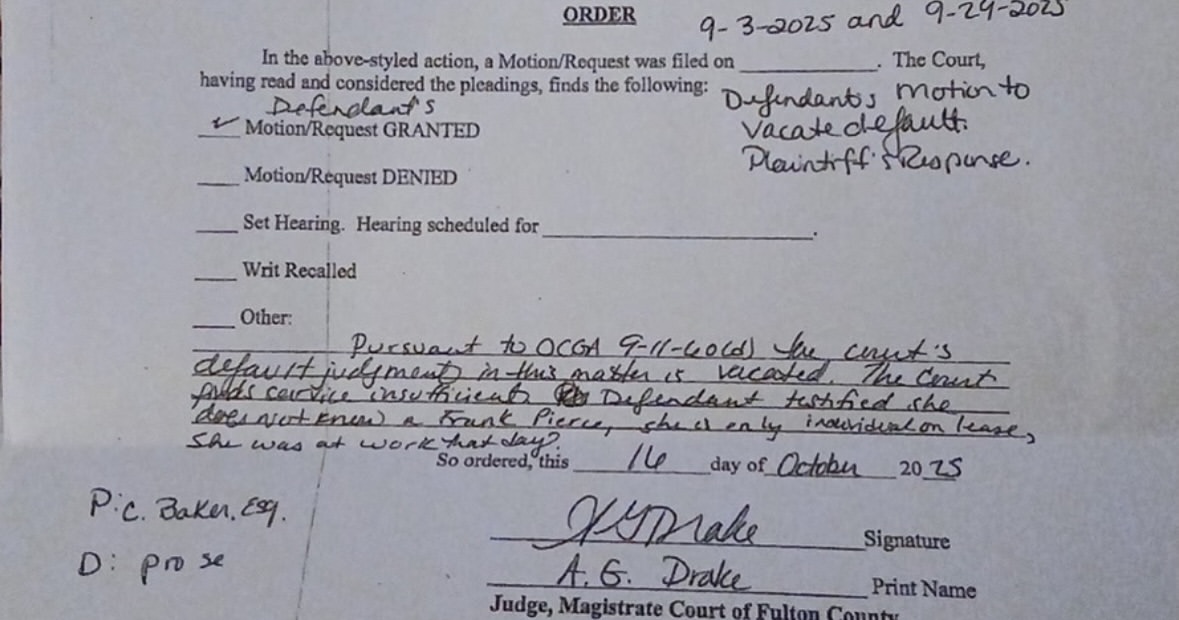 ORDER
9-3-2025 and 9-29-2025
In the above-styled action, a Motion/Request was filed on ____________. The Court,
having read and considered the pleadings, finds the following:
Defendant's motion to
vacate default.
Plaintiff's Response.
Defendant's
✓ Motion/Request GRANTED
____ Motion/Request DENIED
____ Set Hearing. Hearing scheduled for ____________.
____ Writ Recalled
____ Other:
Pursuant to OCGA 9-11-60(d) the court's
default judgment in this matter is vacated. The Court
finds service insufficient Defendant testified she
does not know a Frank Pierce, she is only individual on lease,
she was at work that day.
So ordered, this 16 day of October 2025
P: C. Baker, Esq.
D: pro se
Drake Signature
A. G. Drake Print Name
Judge, Magistrate Court of Fulton County